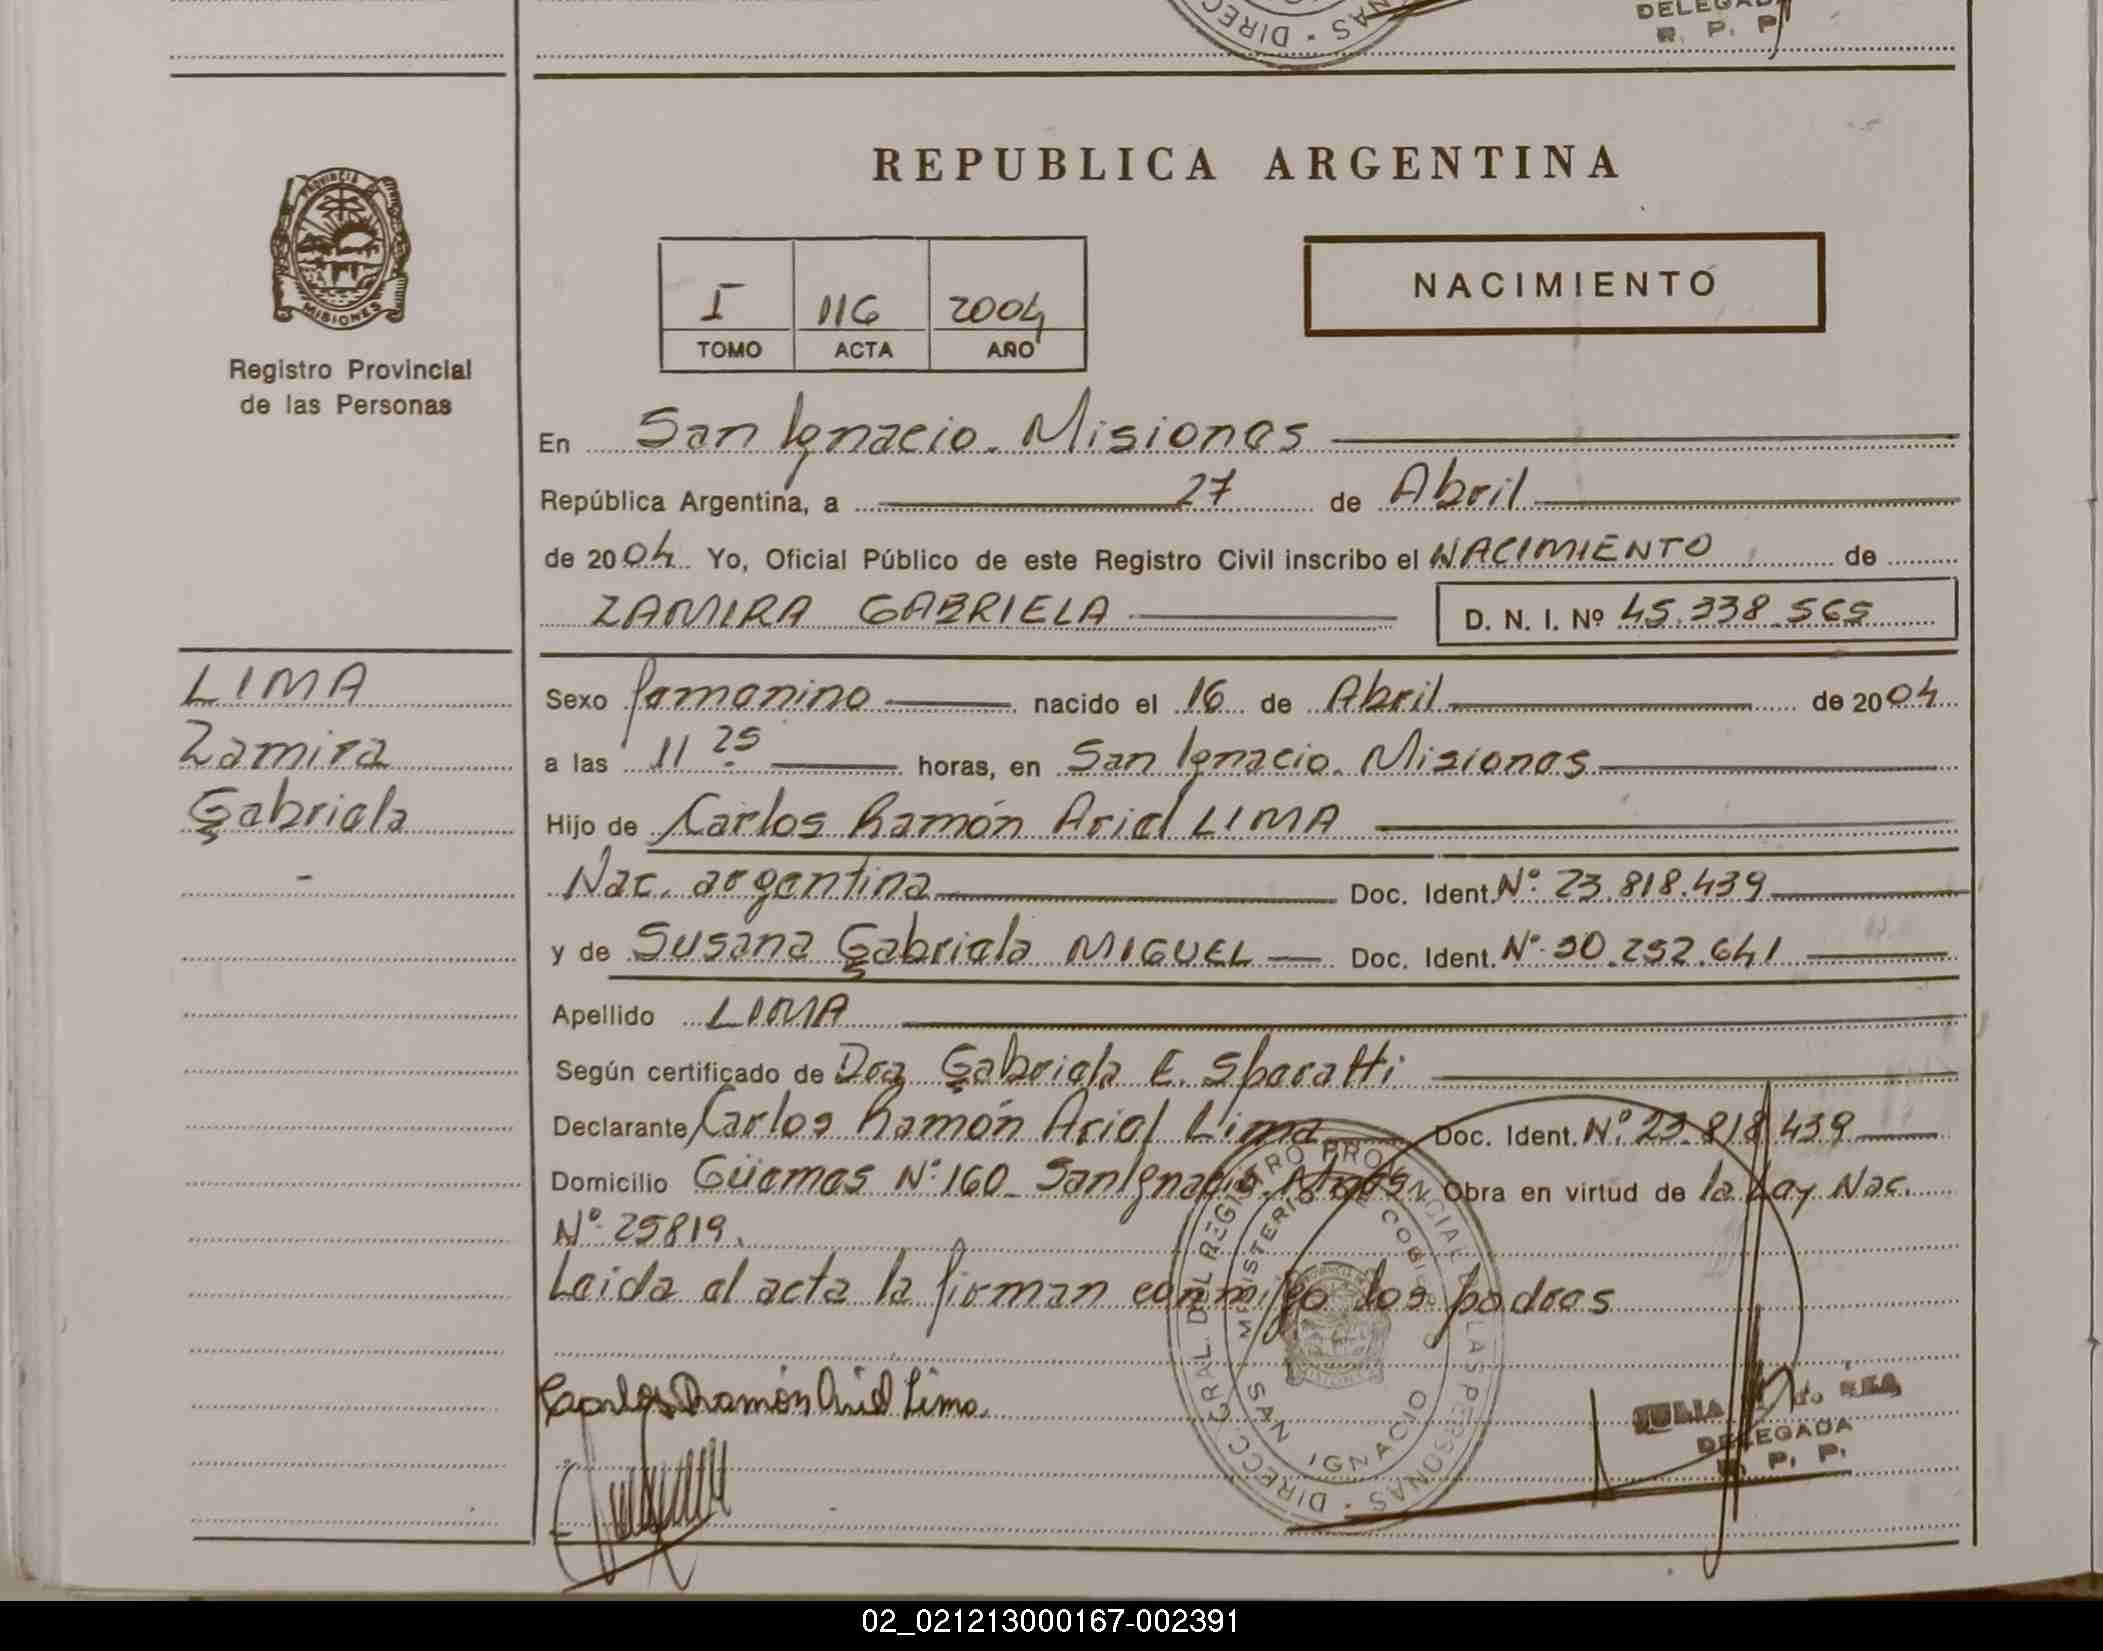 DELEGADA
R. P. P.
DIREC
NAS
REPUBLICA ARGENTINA
PROVINCIA
MISIONES
Registro Provincial
de las Personas
I 116 2004
TOMO ACTA AÑO
NACIMIENTO
En San Ignacio. Misiones
República Argentina, a 27 de Abril
de 2004. Yo, Oficial Público de este Registro Civil inscribo el NACIMIENTO de
ZAMIRA GABRIELA D. N. I. Nº 45.338.565
LIMA
Zamira
Gabriela
-
Sexo femenino nacido el 16 de Abril de 2004
a las 11 25 horas, en San Ignacio. Misiones
Hijo de Carlos Ramón Ariel LIMA
Nac. argentina Doc. Ident. Nº 23.818.439
y de Susana Gabriela MIGUEL Doc. Ident. Nº 30.252.641
Apellido LIMA
Según certificado de Dra Gabriela E. Sbaratti
Declarante Carlos Ramón Ariel Lima Doc. Ident. Nº 23.818.439
Domicilio Güemes Nº 160 San Ignacio. Mnes. Obra en virtud de la Ley Nac.
Nº 25819.
Leida el acta la firman conmigo los padres
Carlos Ramón Ariel Lima.
DIRECC. GRAL. DEL REGISTRO PROVINCIAL DE LAS PERSONAS
MINISTERIO DE GOBIERNO
SAN IGNACIO
JULIA
DELEGADA
R. P. P.
02_021213000167-002391